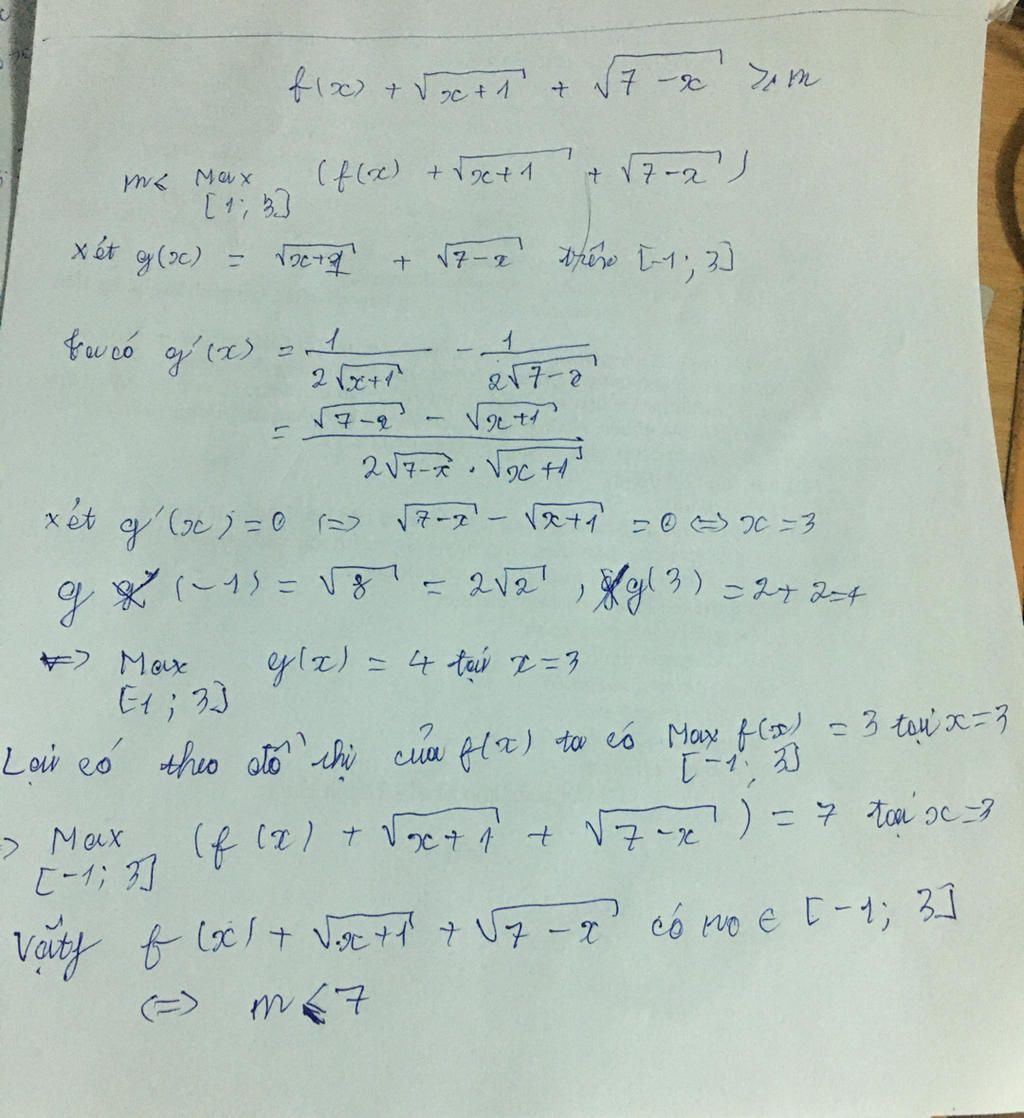 f(x) + √(x+1) + √(7-x) ≥ m
m ≤ Max (f(x) + √(x+1) + √(7-x))
[1; 3]
xét g(x) = √(x+1) + √(7-x) trên [-1; 3]
ta có g'(x) = 1/(2√(x+1)) - 1/(2√(7-x))
= (√(7-x) - √(x+1))/(2√(7-x) . √(x+1))
xét g'(x) = 0 <=> √(7-x) - √(x+1) = 0 <=> x = 3
g (-1) = √8 = 2√2, g(3) = 2+2=4
=> Max g(x) = 4 tại x = 3
[-1; 3]
Lại có theo đồ thị của f(x) ta có Max f(x) = 3 tại x=3
[-1; 3]
=> Max (f(x) + √(x+1) + √(7-x)) = 7 tại x=3
[-1; 3]
Vậy f(x) + √(x+1) + √(7-x) có no ∈ [-1; 3]
<=> m ≤ 7